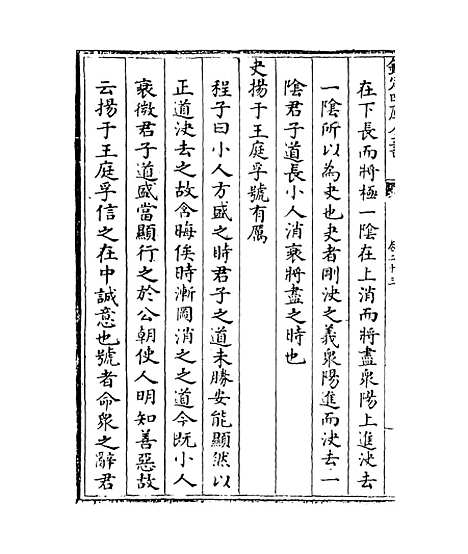 欽定四庫全書
卷二十三
在下長而將極一陰在上消而將盡衆陽上進決去
一陰所以為夬也夬者剛決之義衆陽進而決去一
陰君子道長小人消衰將盡之時也
夬揚于王庭孚號有厲
程子曰小人方盛之時君子之道未勝安能顯然以
正道決去之故含晦俟時漸圖消之之道今既小人
衰微君子道盛當顯行之於公朝使人明知善惡故
云揚于王庭孚信之在中誠意也號者命衆之辭君